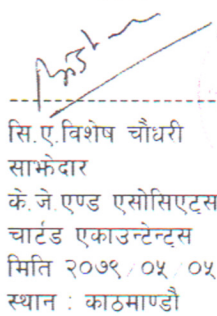 सि.ए.विशेष चौधरी
साझेदार
के.जे.एण्ड एसोसिएट्स
चार्टड एकाउन्टेन्ट्स
मिति २०७९/०५/०५
स्थान : काठमाण्डौ